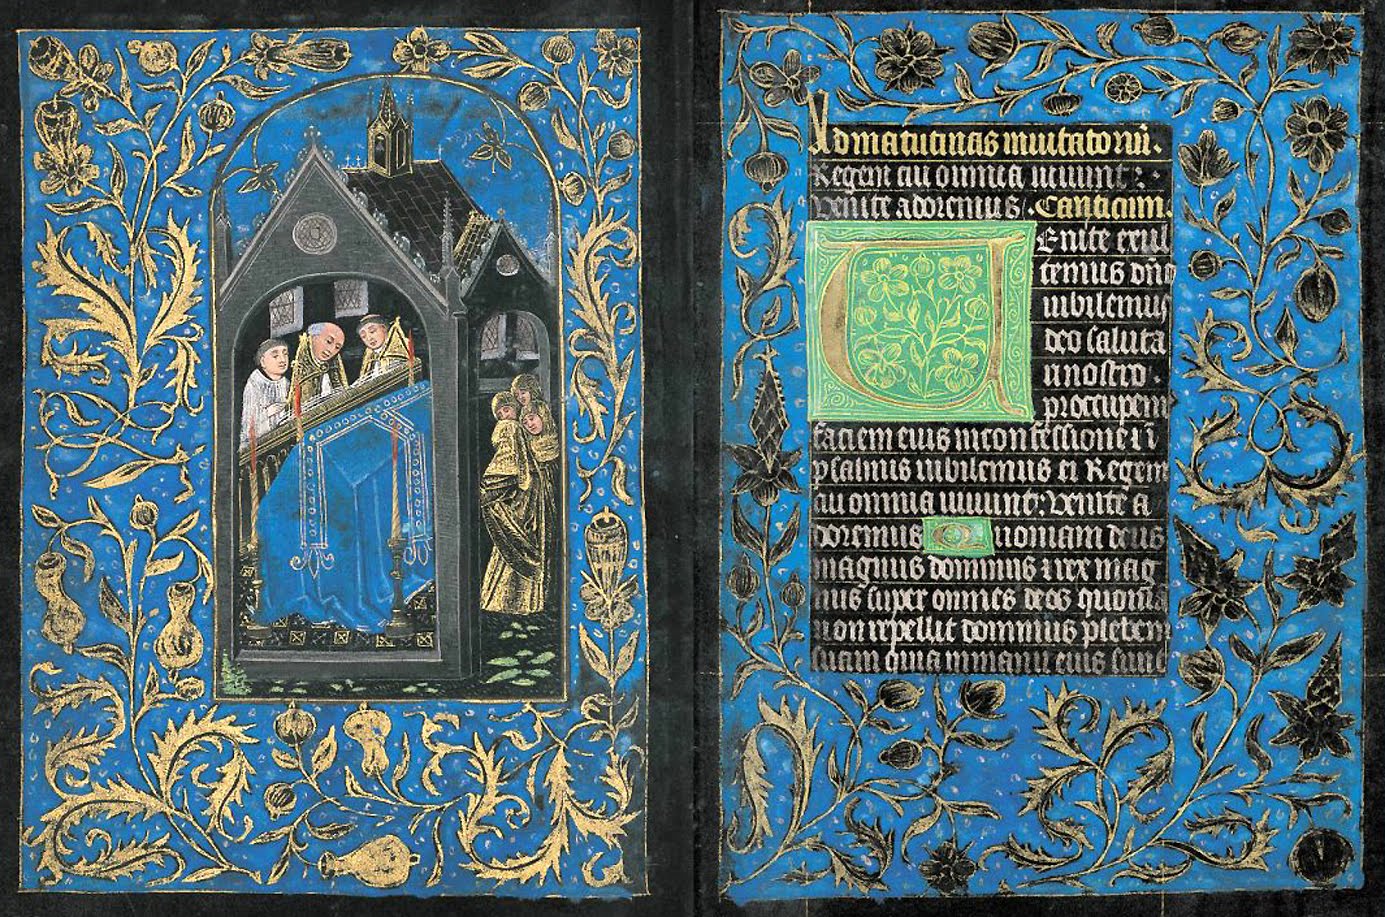 Ad matutinas inuitatoriū.
Regem cui omnia uiuunt:
Venite adoremus. Canticum.
Uenite exul
temus dn̄o
iubilemus
deo saluta
ri nostro.
preoccupem
faciem eius in confessione et ī
psalmis iubilemus ei Regem
cui omnia uiuunt: Venite a
doremus Quoniam deus
magnus dominus et rex mag
nus super omnes deos quoniā
non repellit dominus plebem
suam quia in manu eius sunt